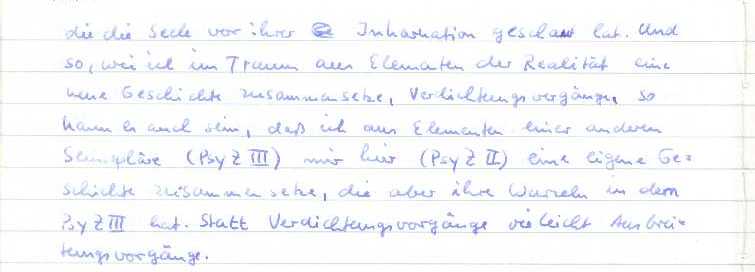 die die Seele vor ihrer Inkarnation geschaut hat. Und
so, wie ich im Traum aus Elementen der Realität eine
neue Geschichte zusammensetze, Verdichtungsvorgänge, so
kann es auch sein, daß ich aus Elementen einer anderen
(Psy Z III) mir hier (Psy Z II) eine eigene Ge-
schichte zusammensetze, die aber ihre Wurzeln in dem
Psy Z III hat. Statt Verdichtungsvorgänge vieleicht Ausbrei-
tungsvorgänge.